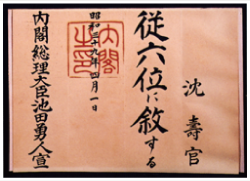 沈壽官
従六位に敘する
昭和三十九年四月一日
内閣之印
内閣総理大臣池田勇人宣